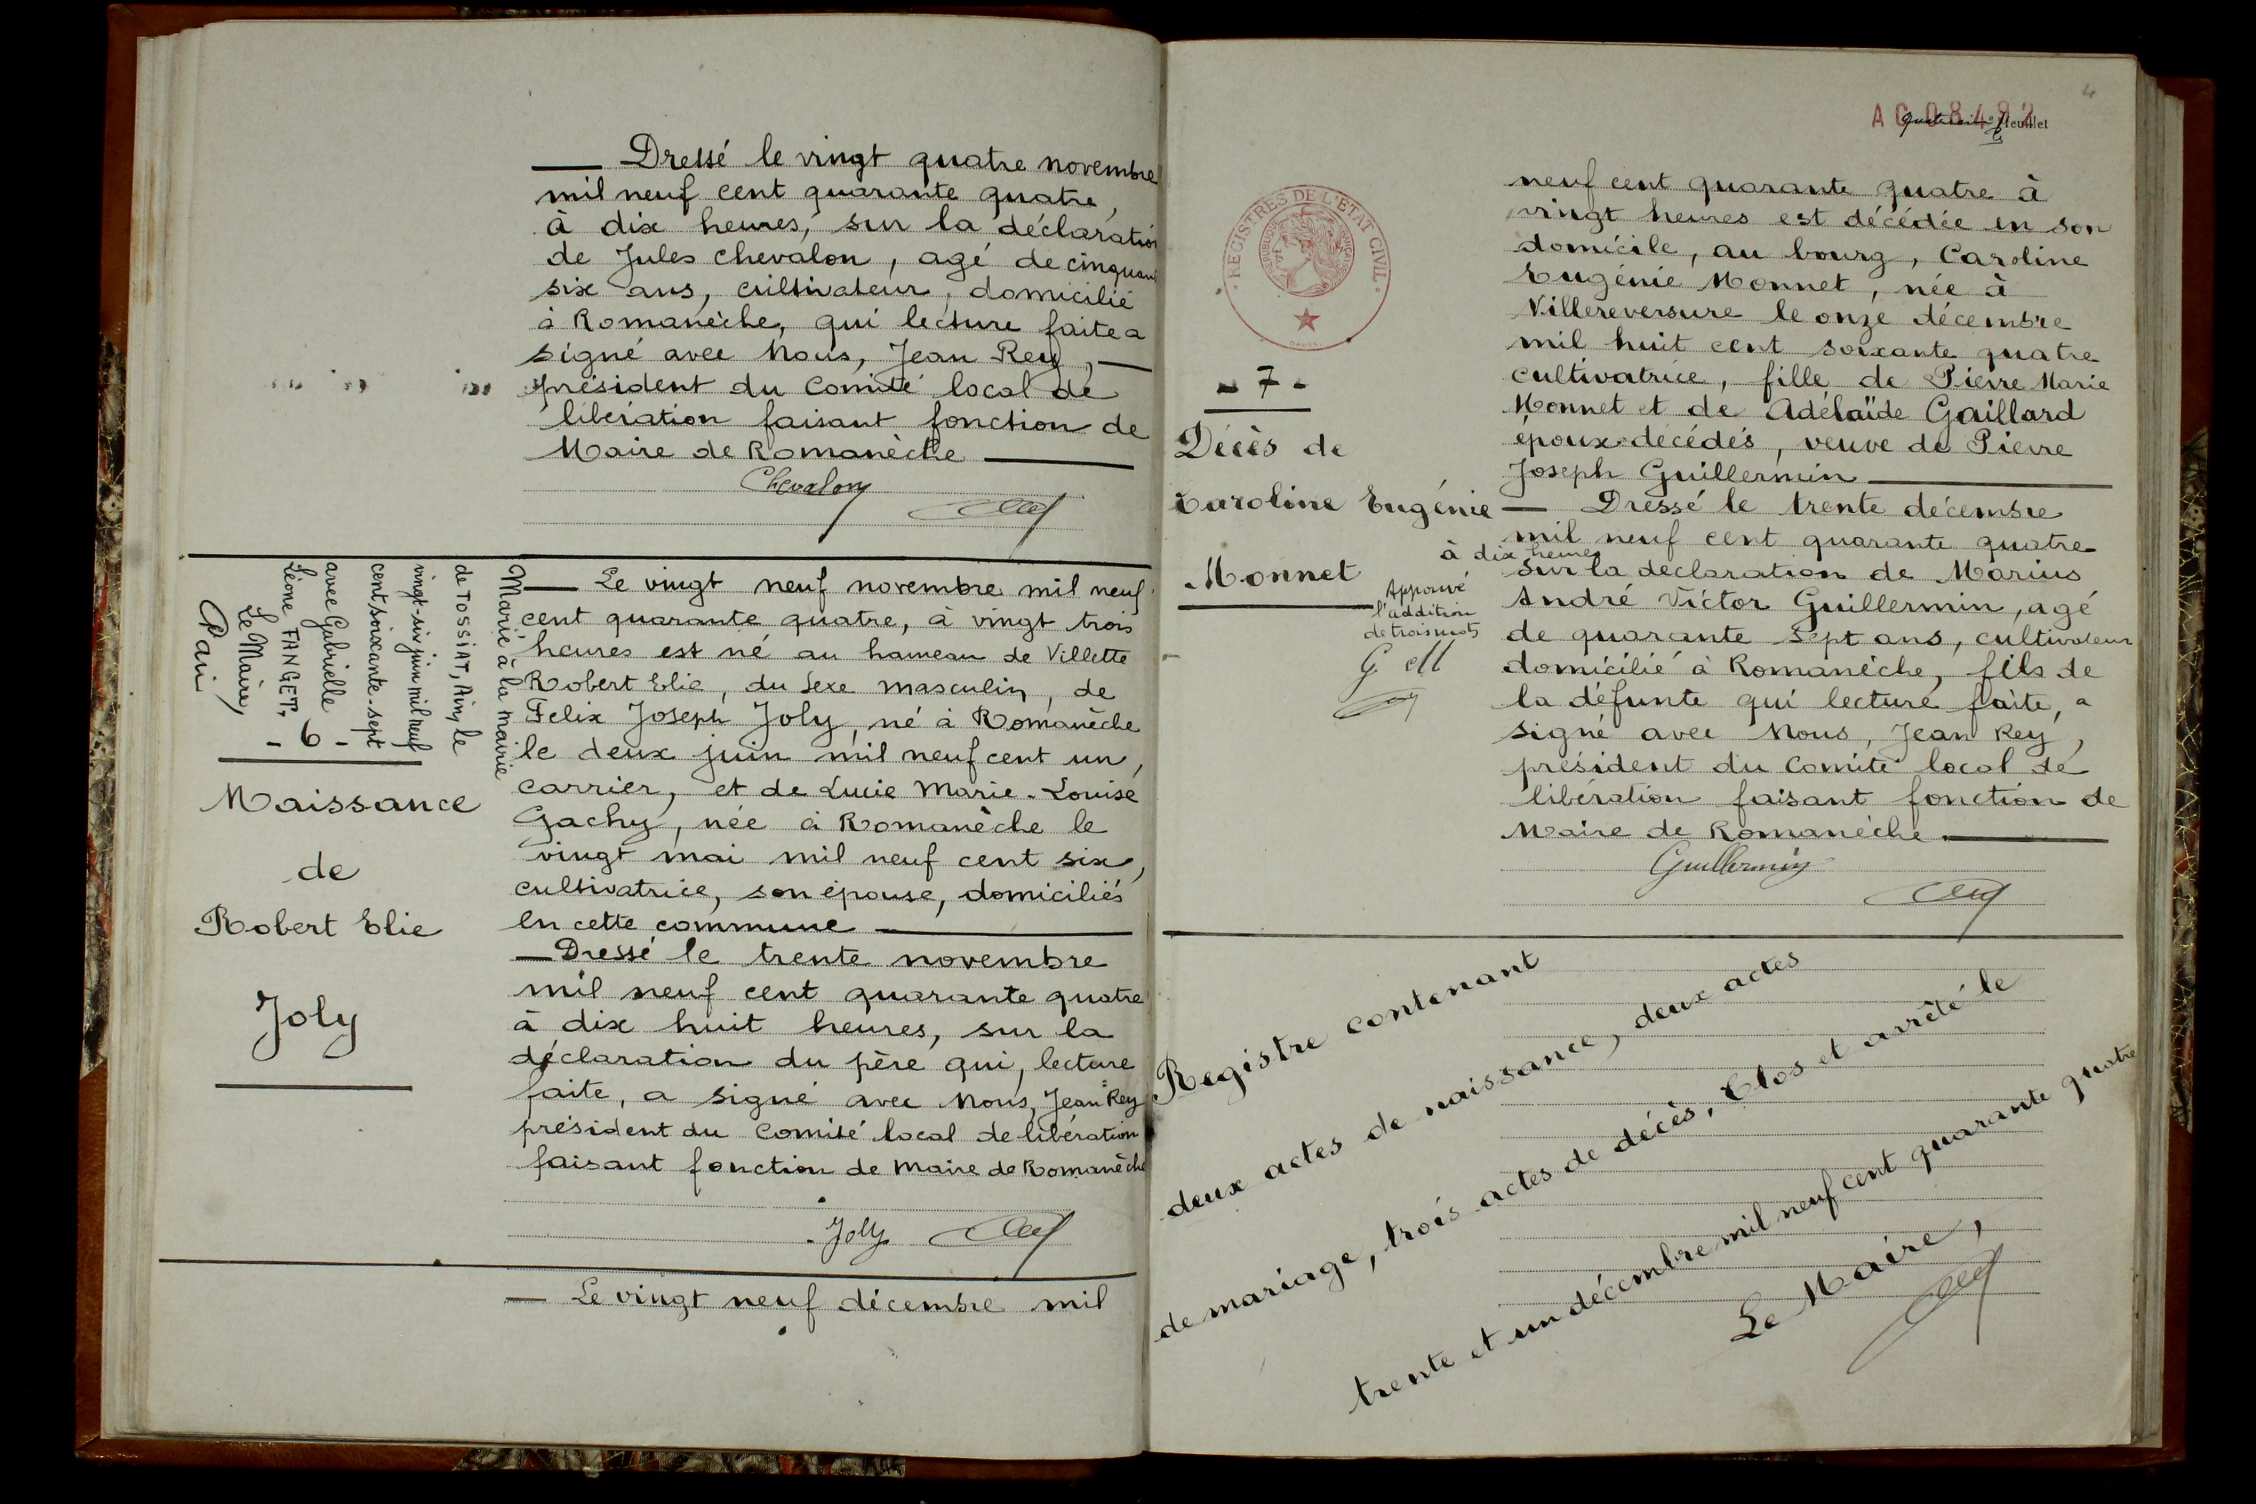 Dressé le vingt quatre novembre
mil neuf cent quarante quatre,
à dix heures, sur la déclaration
de Jules Chevalon, agé de cinquante
six ans, cultivateur, domicilié
à Romanèche, qui lecture faite a
signé avec Nous, Jean Rey,
président du Comité local de
libération faisant fonction de
Maire de Romanèche
Chevalon
Marié à la mairie
de TOSSIAT, Ain, le
vingt-six juin mil neuf
cent soixante-sept
avec Gabrielle
Léone TANGET,
Le Maire,
- 6 -
Naissance
de
Robert Elie
Joly
Le vingt neuf novembre mil neuf
cent quarante quatre, à vingt trois
heures est né au hameau de Villette
Robert Elie, du sexe masculin, de
Felix Joseph Joly, né à Romanèche
le deux juin mil neuf cent un,
carrier, et de Lucie Marie-Louise
Gachy, née à Romanèche le
vingt mai mil neuf cent six,
cultivatrice, son épouse, domiciliés
en cette commune
Dressé le trente novembre
mil neuf cent quarante quatre
à dix huit heures, sur la
déclaration du père qui, lecture
faite, a signé avec Nous, Jean Rey
président du Comité local de libération
faisant fonction de Maire de Romanèche
Joly
Le vingt neuf décembre mil
4
feuillet
REGISTRES DE L'ETAT CIVIL
- 7 -
Décès de
Caroline Eugénie
Monnet
neuf cent quarante quatre à
vingt heures est décédée en son
domicile, au bourg, Caroline
Eugénie Monnet, née à
Villereversure le onze décembre
mil huit cent soixante quatre
cultivatrice, fille de Pierre Marie
Monnet et de Adélaïde Gaillard
époux décédés, veuve de Pierre
Joseph Guillermin
Dressé le trente décembre
mil neuf cent quarante quatre
à dix heures
sur la déclaration de Marius
André Victor Guillermin, agé
de quarante sept ans, cultivateur
domicilié à Romanèche, fils de
la défunte qui lecture faite, a
signé avec Nous, Jean Rey,
président du Comité local de
libération faisant fonction de
Maire de Romanèche
Approuvé
l'addition
de trois mots
G. M
Guillermin
Registre contenant
deux actes de naissance, deux actes
de mariage, trois actes de décès, Clos et arrêté le
trente et un décembre mil neuf cent quarante quatre
Le Maire,